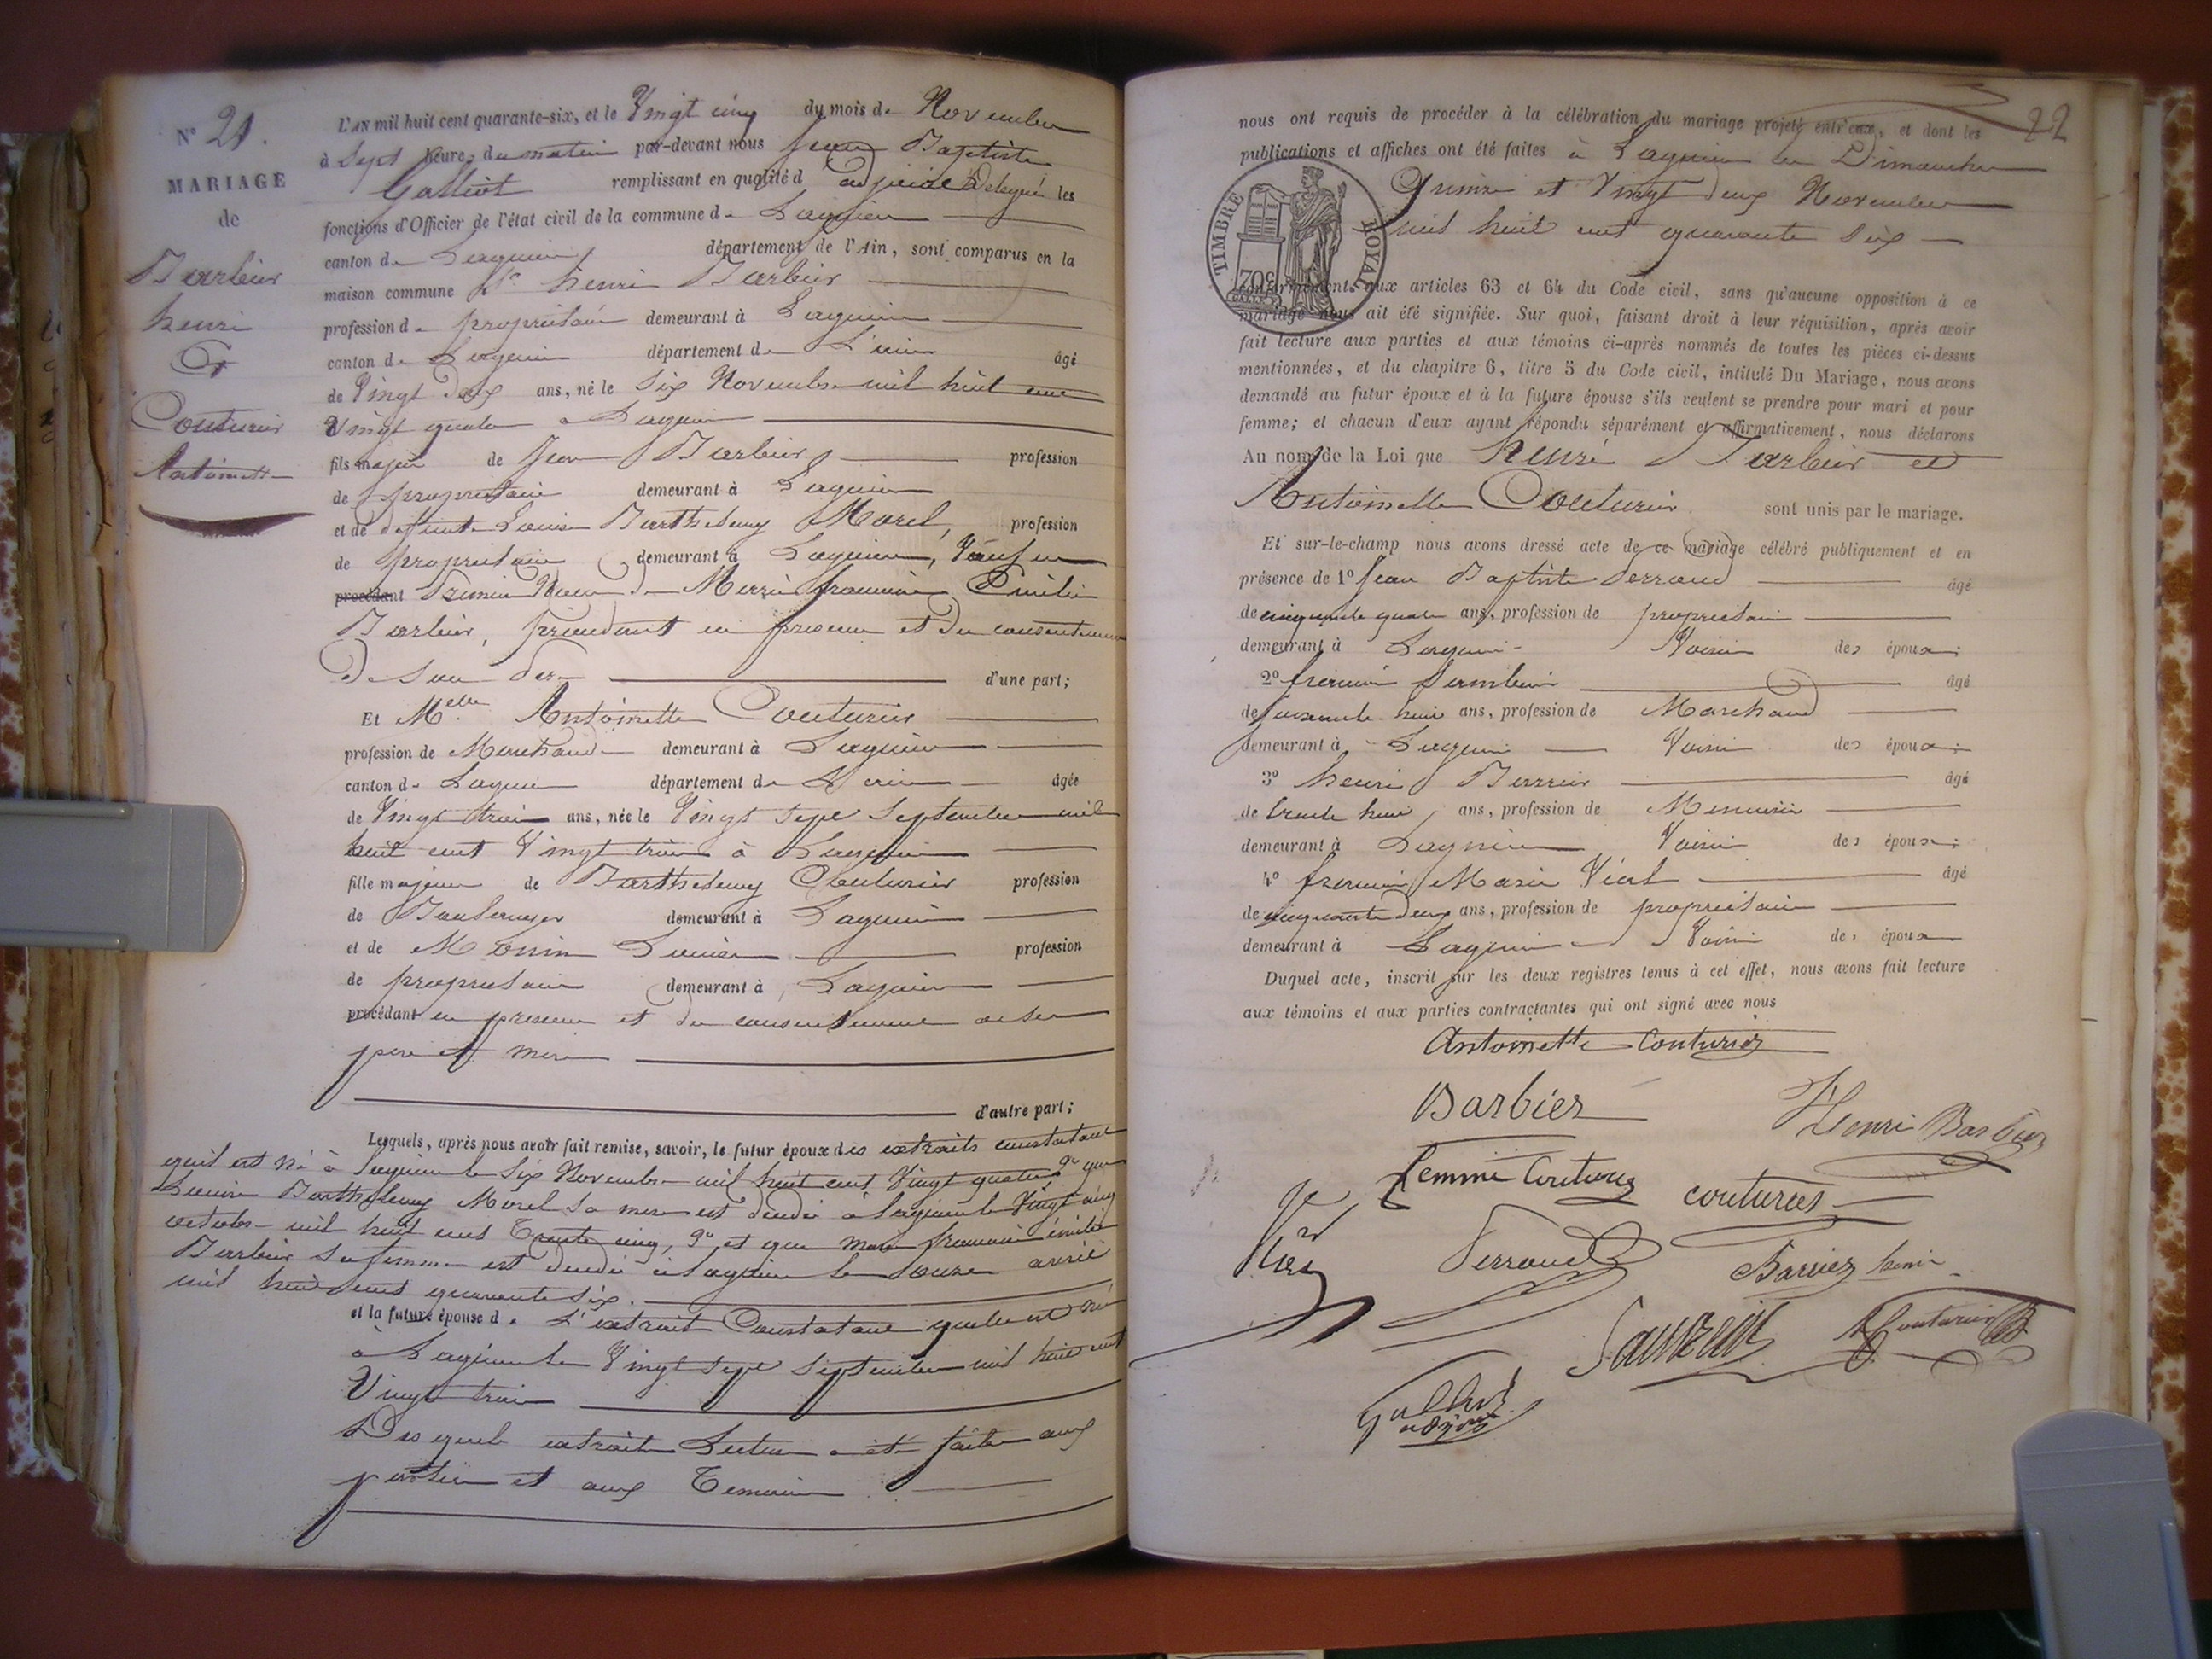 N° 21.
MARIAGE
de
Barbier
henri
Et
Couturier
Antoinette
L'AN mil huit cent quarante-six, et le Vingt cinq du mois de Novembre
à Sept heures du matin par-devant nous Jean Baptiste
Galliot remplissant en qualité d'adjoint Delegué les
fonctions d'Officier de l'état civil de la commune de Lagnieu
canton de Lagnieu département de l'Ain, sont comparus en la
maison commune Sr henri Barbier
profession de propriétaire demeurant à Lagnieu
canton de Lagnieu département de L'ain âgé
de Vingt deux ans, né le Six Novembre mil huit cent
Vingt quatre à Lagnieu
fils majeur de Jean Barbier profession
de propriétaire demeurant à Lagnieu
et de defunte Louise Barthelemy Morel, profession
de propriétaire demeurant à Lagnieu, Veuf en
procédant de Marie françoise Emilie
Barbier, procedant en presence et du consentement
de son Per
d'une part;
Et Melle Antoinette Couturier
profession de Marchande demeurant à Lagnieu
canton de Lagnieu département de L'ain âgée
de Vingt trois ans, née le Vingt Sept Septembre mil
huit cent Vingt trois à Lagnieu
fille majeure de Barthelemy Couturier profession
de Boulanger demeurant à Lagnieu
et de Monin profession
de propriétaire demeurant à Lagnieu
procédant en presence et du consentement de ses
pere et mere
d'autre part;
Lesquels, après nous avoir fait remise, savoir, le futur époux des extraits constatant
qu'il est né à Lagnieu le Six Novembre mil huit cent Vingt quatre, 2° que
Louise Barthelemy Morel Sa mere est decedée à Lagnieu le Vingt cinq
octobre mil huit cent Trente cinq, 3° et que Marie françoise émilie
Barbier Sa femme est decedée à Lagnieu le Douze avril
mil huit cent quarante Six.
et la future épouse de L'extrait Constatant qu'elle est née
à Lagnieu le Vingt Sept Septembre mil huit cent
Vingt trois
Desquels extraits Lecture a été faite aux
parties et aux Temoins
22
nous ont requis de procéder à la célébration du mariage projeté entr'eux, et dont les
publications et affiches ont été faites à Lagnieu les Dimanches
Quinze et Vingt deux Novembre
mil huit cent quarante Six
TIMBRE ROYAL
70c
conformément aux articles 63 et 64 du Code civil, sans qu'aucune opposition à ce
mariage nous ait été signifiée. Sur quoi, faisant droit à leur réquisition, après avoir
fait lecture aux parties et aux témoins ci-après nommés de toutes les pièces ci-dessus
mentionnées, et du chapitre 6, titre 5 du Code civil, intitulé Du Mariage, nous avons
demandé au futur époux et à la future épouse s'ils veulent se prendre pour mari et pour
femme; et chacun d'eux ayant répondu séparément et affirmativement, nous déclarons
Au nom de la Loi que henri Barbier et
Antoinette Couturier sont unis par le mariage.
Et sur-le-champ nous avons dressé acte de ce mariage célébré publiquement et en
présence de 1° Jean Baptiste Perraud âgé
de cinquante quatre ans, profession de propriétaire
demeurant à Lagnieu Voisin des époux;
2° âgé
de huit ans, profession de Marchand
demeurant à Lagnieu Voisin des époux;
3° henri Barrier âgé
de trente huit ans, profession de Menuisier
demeurant à Lagnieu Voisin des époux;
4° Marie Vial âgé
de cinquante deux ans, profession de propriétaire
demeurant à Lagnieu Voisin des époux
Duquel acte, inscrit sur les deux registres tenus à cet effet, nous avons fait lecture
aux témoins et aux parties contractantes qui ont signé avec nous
Antoinette Couturier
Barbier Henri Barbier
femme Couturier couturier
Perraud Barrier henri
Couturier
Galliot
adjoint